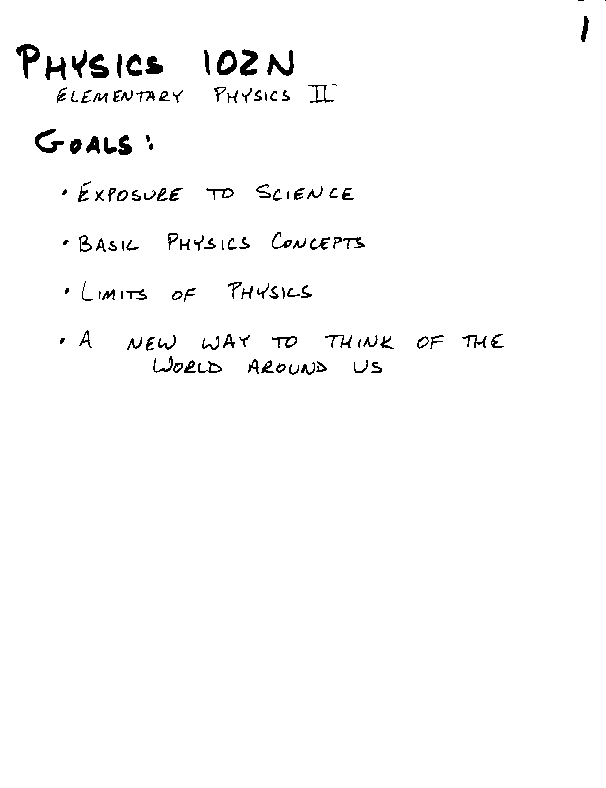 1
PHYSICS 102N
ELEMENTARY PHYSICS II
GOALS:
• EXPOSURE TO SCIENCE
• BASIC PHYSICS CONCEPTS
• LIMITS OF PHYSICS
• A NEW WAY TO THINK OF THE
WORLD AROUND US